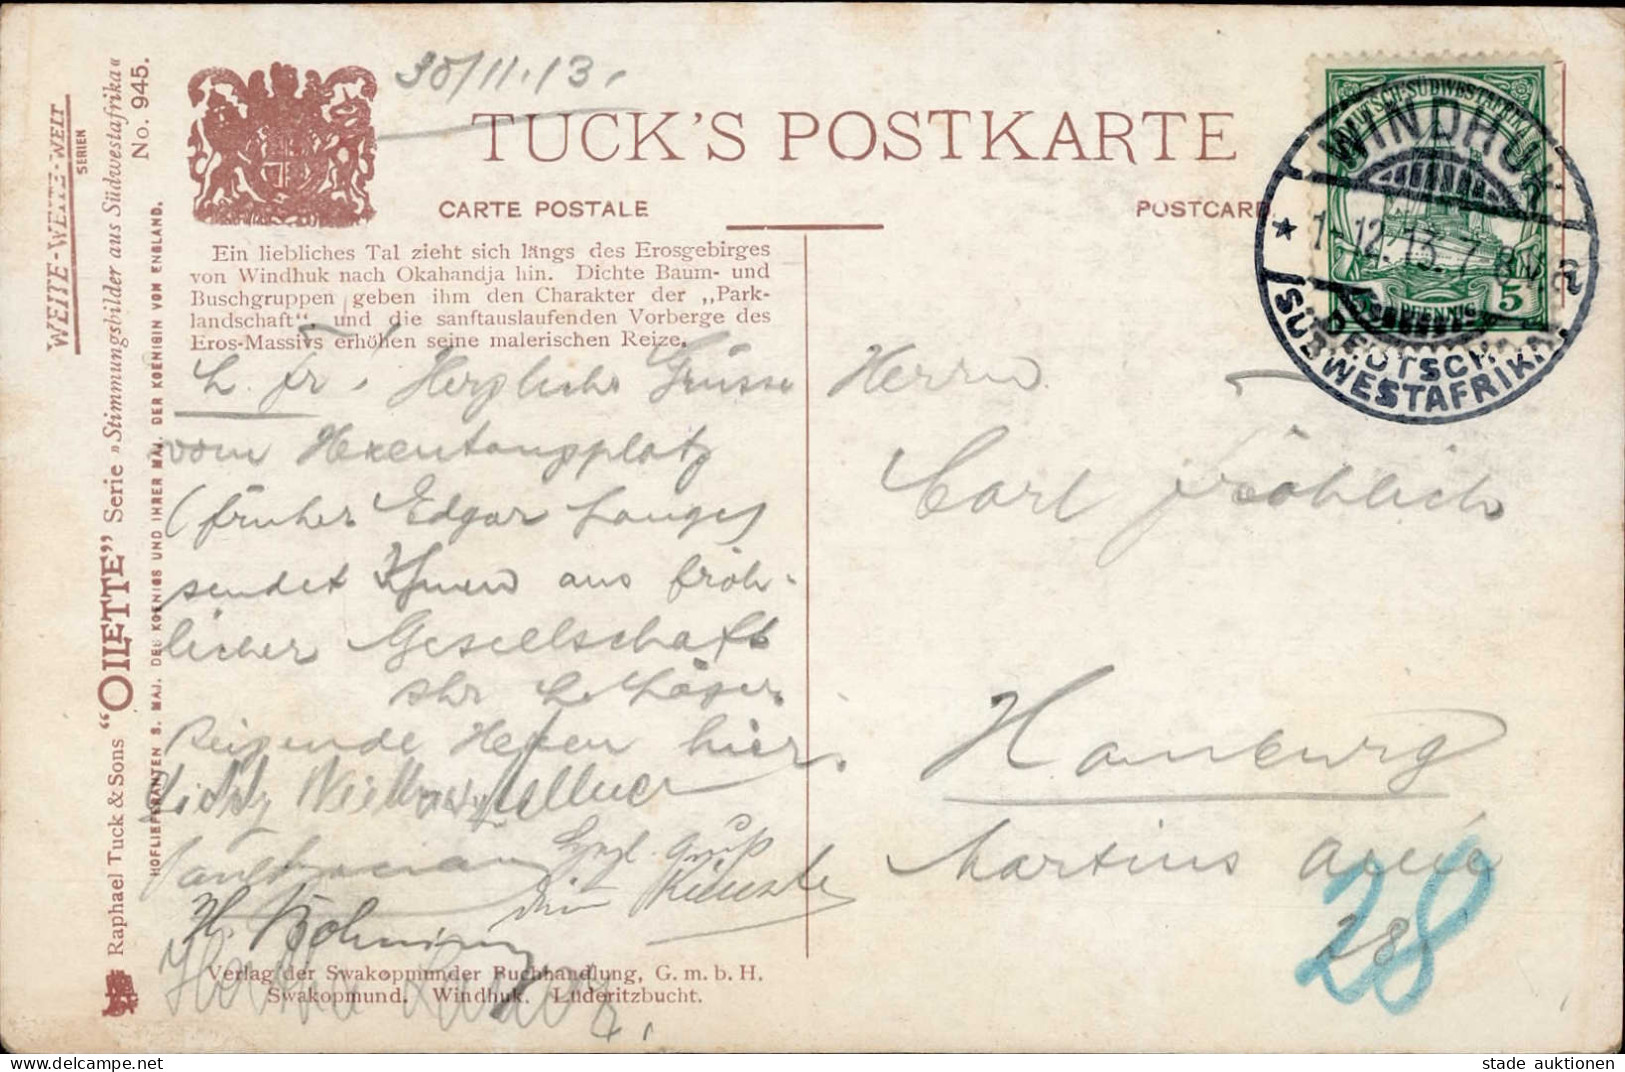 30/11.13.
TUCK'S POSTKARTE
CARTE POSTALE
POSTCARD
WEITE-WEITE-WELT
SERIEN
Raphael Tuck & Sons "OILETTE" Serie »Stimmungsbilder aus Südwestafrika«
No. 945.
HOFLIEFERANTEN S. MAJ. DES KOENIGS UND IHRER MAJ. DER KOENIGIN VON ENGLAND.
Ein liebliches Tal zieht sich längs des Erosgebirges
von Windhuk nach Okahandja hin. Dichte Baum- und
Buschgruppen geben ihm den Charakter der „Park-
landschaft“. und die sanftauslaufenden Vorberge des
Eros-Massivs erhöhen seine malerischen Reize.
L. Fr. Herzliche Grüsse
vom Hexentanzplatz
(früher Edgar Lange)
sendet Ihnen aus fröh-
licher Gesellschaft
Ihr L.
Reizende Hexen hier.
H. Böhming
Herrn
Carl Fröhlich
Hamburg
Martins Allée
28
28
DEUTSCH-SÜDWESTAFRIKA
5 PFENNIG 5
WINDHUK
1.12.13. 7-8V.
a
DEUTSCH-
SÜDWESTAFRIKA
Verlag der Swakopmunder Buchhandlung, G. m. b. H.
Swakopmund. Windhuk. Lüderitzbucht.
stade auktionen